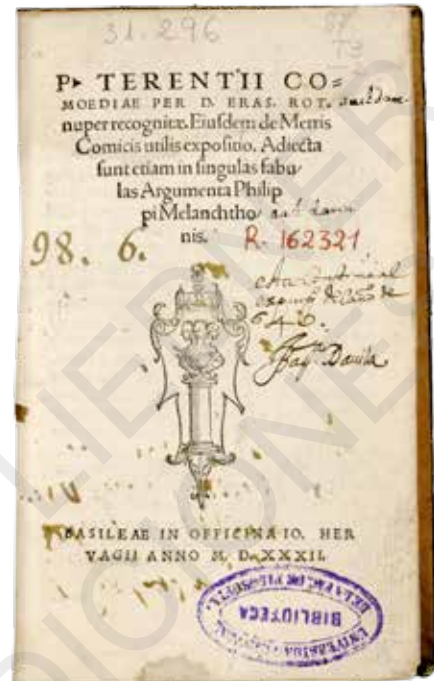 31.296
P. TERENTII CO=
MOEDIAE PER D. ERAS. ROT.
nuper recognitæ. Eiusdem de Metris
Comicis utilis expositio. Adiecta
sunt etiam in singulas fabu/
las Argumenta Philip
pi Melanchtho/
nis.
R. 162321
98. 6.
de
Davila
BASILEAE IN OFFICINA IO. HER
VAGII ANNO M. D. XXXII.
BIBLIOTECA
LIBER
EDICIONES